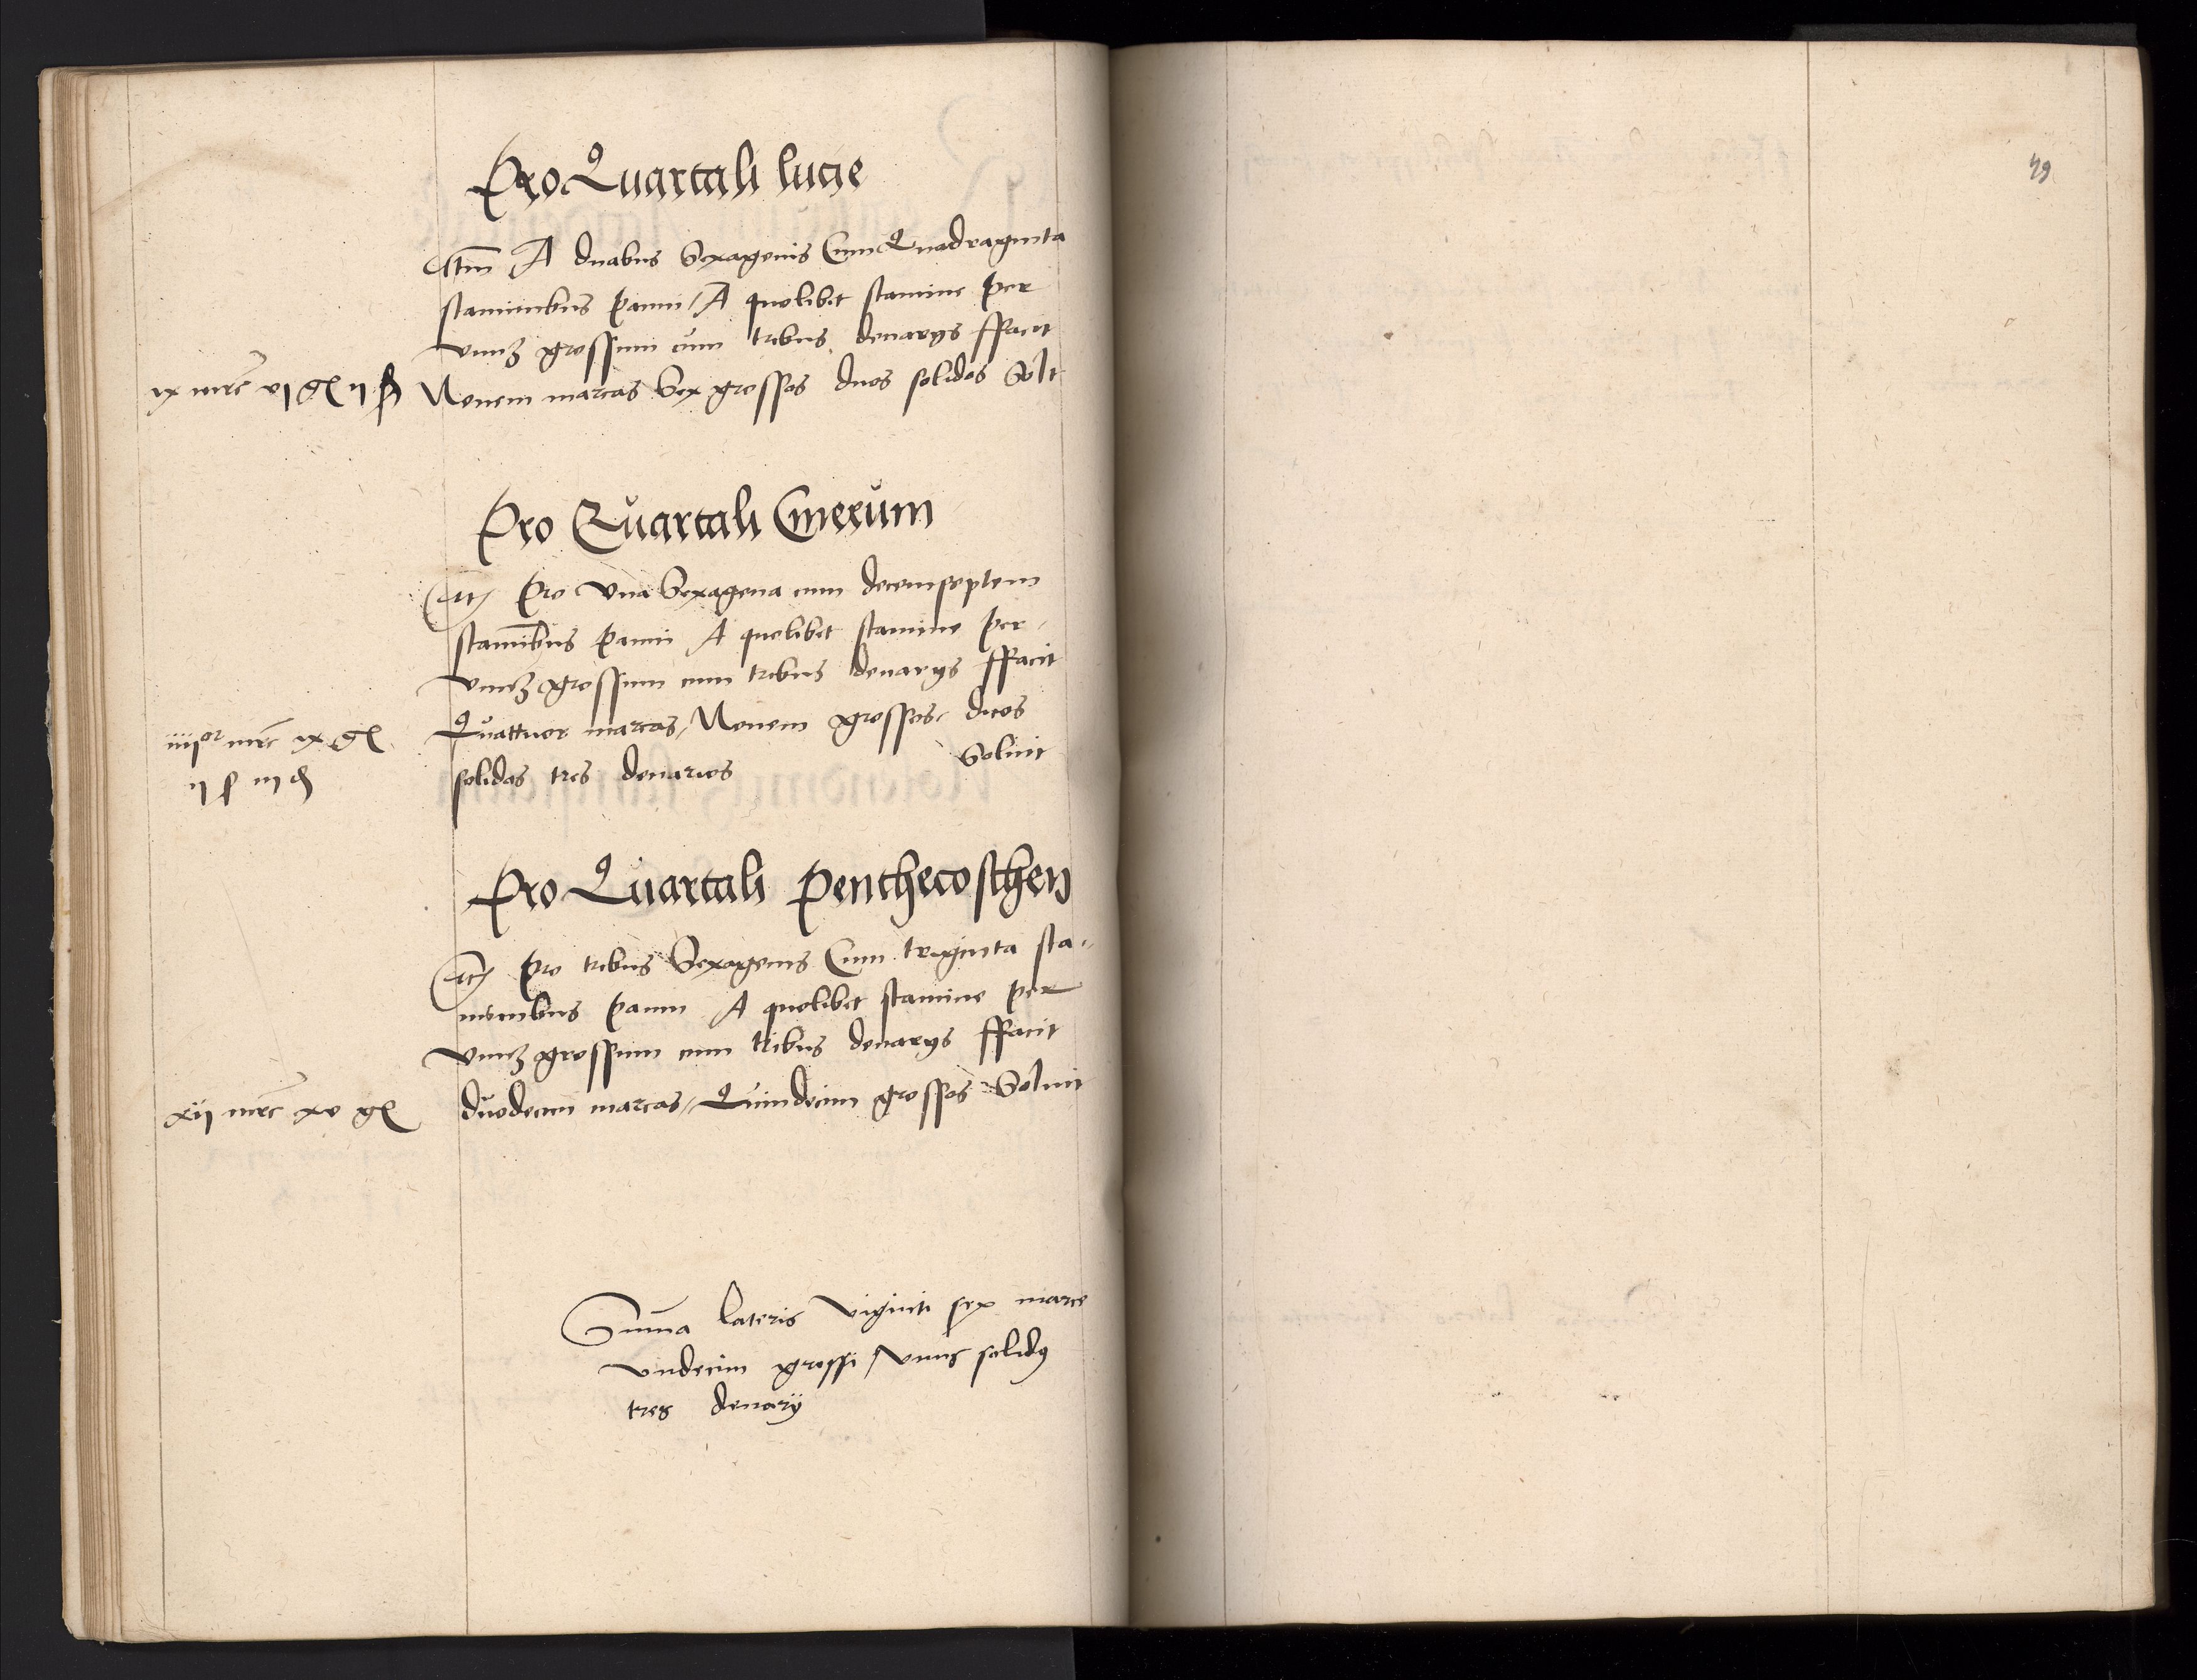 Pro Quartali lucie
Itm A duabus Sexagenis Cum Quadraginta
staminibus panni / A quolibet stamine per
vnu(m) grossum cum tribus denarys ffacit
ix mrc vj gl ij ß Nouem marcas Sex grossos duos solidos Solt
Pro Quartali Cinerum
Itē Pro Vna Sexagena cum decemseptem
staminibus panni A quolibet stamine per
vnu(m) grossum cum tribus denarys ffacit
iiij or mrc ix gl Quattuor marcas / Nouem grossos duos
ij ß iij d solidos tres denarios Soluit
Pro Quartali Penthecosthen
Itē Pro tribus Sexagenis Cum triginta sta
minibus panni A quolibet stamine per
vnu(m) grossum cum tribus denarys ffacit
xij mrc xv gl duodecim marcas / Quindecim grossos Soluit
Summa lateris viginti sex marce
vndecim grossi / vnus solidus
tres denarij
49